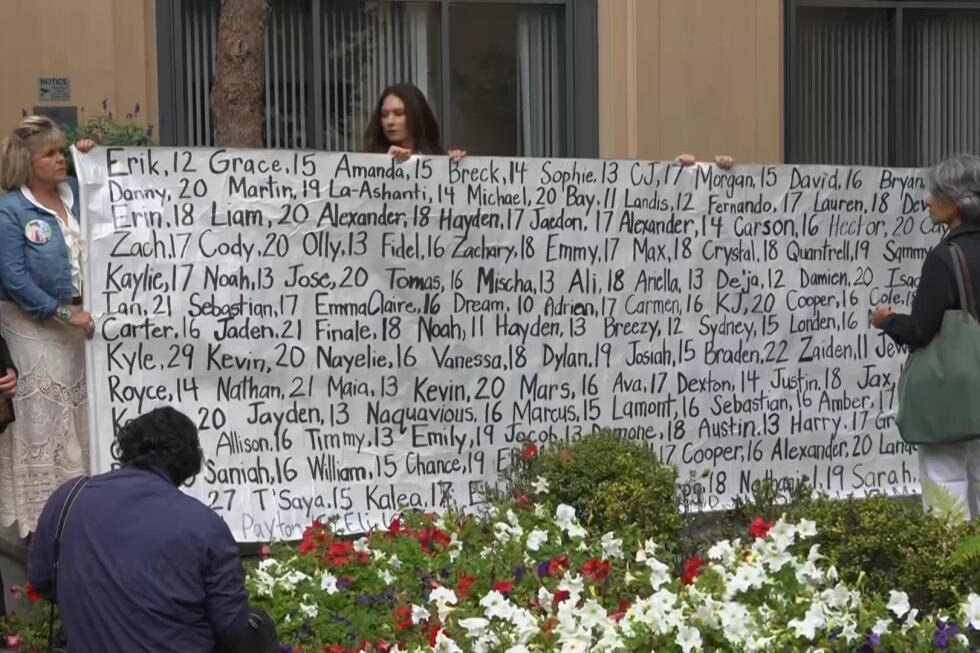 NOTICE
Erik,12 Grace,15 Amanda,15 Breck,14 Sophie,13 CJ,17 Morgan,15 David,16 Bryan,
Danny,20 Martin,19 La-Ashanti,14 Michael,20 Bay,11 Landis,12 Fernando,17 Lauren,18
Erin,18 Liam,20 Alexander,18 Hayden,17 Jaedon,17 Alexander,14 Carson,16 Hector,20
Zach,17 Cody,20 Olly,13 Fidel,16 Zachary,18 Emmy,17 Max,18 Crystal,18 Quantrell,19 Sammy
Kaylie,17 Noah,13 Jose,20 Tomas,16 Mischa,13 Ali,18 Ariella,13 De'ja,12 Damien,20
Ian,21 Sebastian,17 EmmaClaire,16 Dream,10 Adrien,17 Carmen,16 KJ,20 Cooper,16 Cole,
Carter,16 Jaden,21 Finale,18 Noah,11 Hayden,13 Breezy,12 Sydney,15 Londen,16
Kyle,29 Kevin,20 Nayelie,16 Vanessa,18 Dylan,19 Josiah,15 Braden,22 Zaiden,11
Royce,14 Nathan,21 Maia,13 Kevin,20 Mars,16 Ava,17 Dexton,14 Justin,18 Jax,
20 Jayden,13 Naquavious,16 Marcus,15 Lamont,16 Sebastian,16 Amber,17
Allison,16 Timmy,13 Emily,19 Jacob,13 18 Austin,13 Harry,17
Saniah,16 William,15 Chance,19 17 Cooper,16 Alexander,20
27 T'Saya,15 Kalea,17 18 Nathaniel,19 Sarah,
Payton